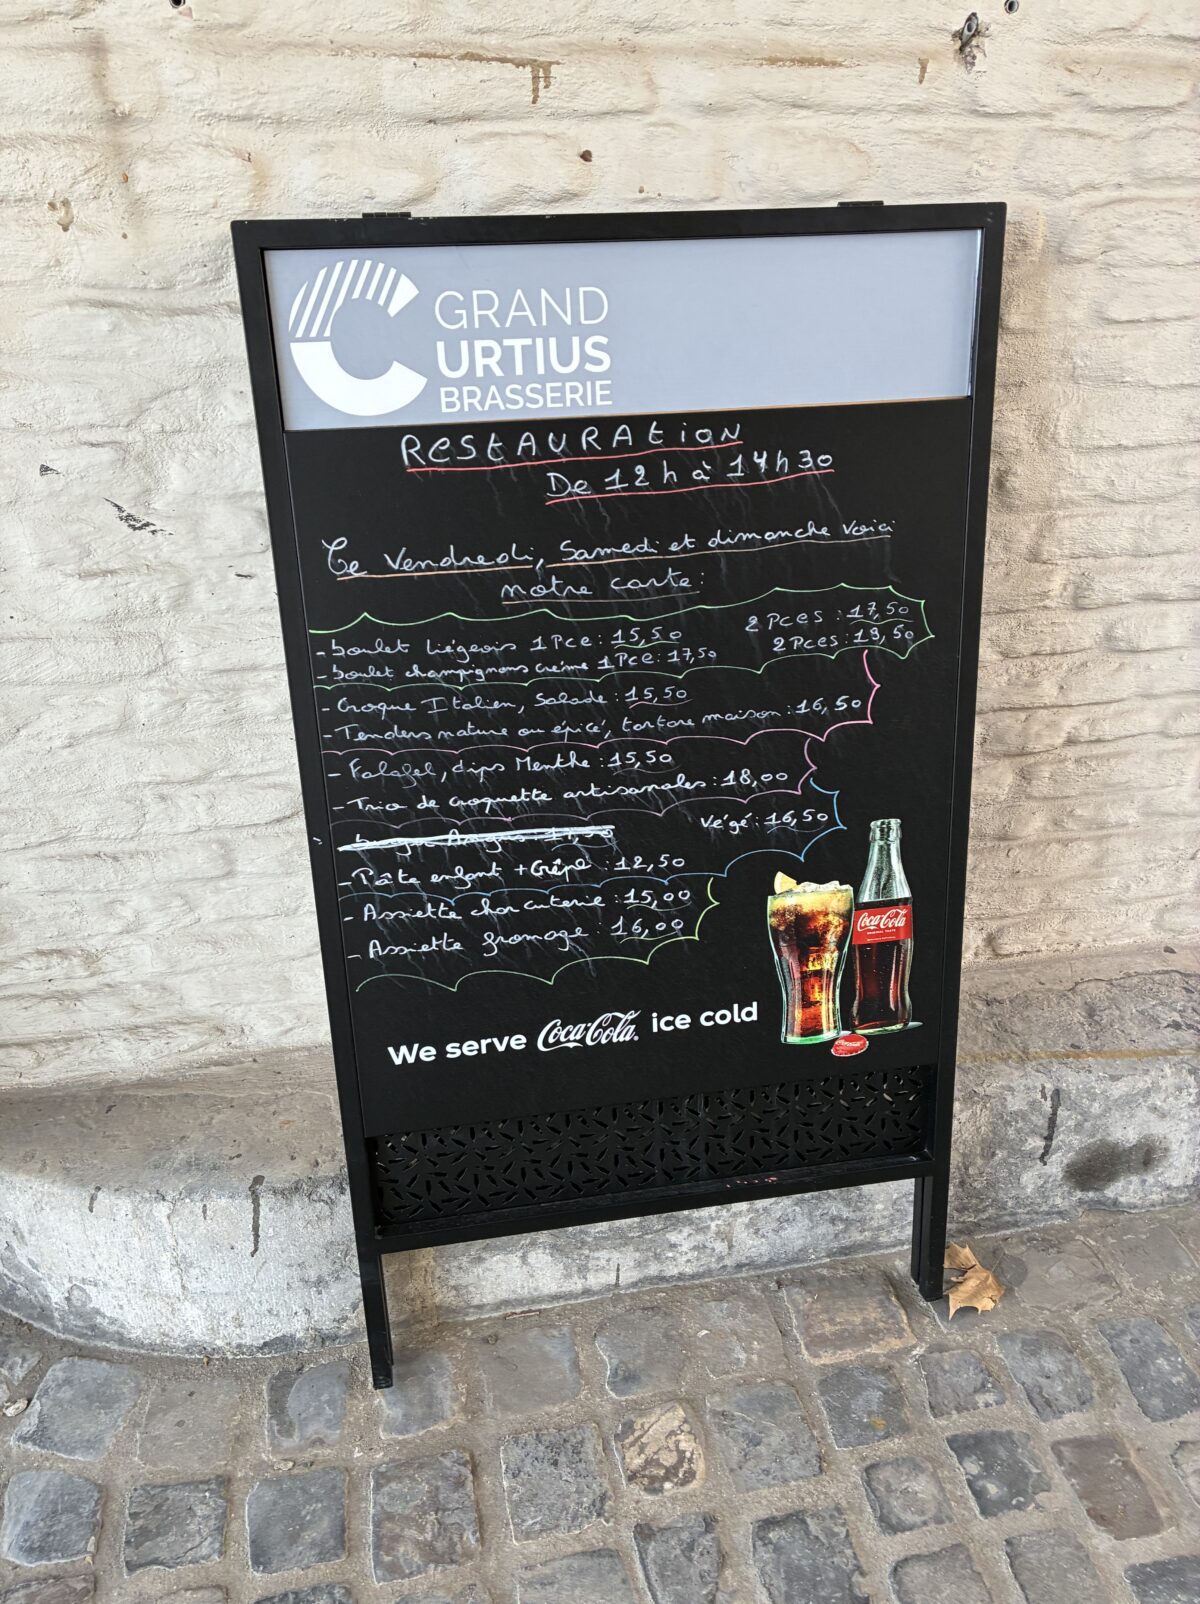 GRAND
CURTIUS
BRASSERIE
RESTAURATION
De 12h à 14h30
Ce Vendredi, Samedi et dimanche voici
notre carte:
- boulet liégeois 1 Pce : 15,50 2 Pces : 17,50
- boulet champignons crème 1 Pce : 17,50 2 Pces : 19,50
- Croque Italien, Salade : 15,50
- Tenders nature ou épicé, tartare maison : 16,50
- Falafel, dips Menthe : 15,50
- Trio de croquette artisanales : 18,00
Végé : 16,50
- Pâte enfant + Crêpe : 12,50
- Assiette charcuterie : 15,00
- Assiette fromage : 16,00
We serve Coca-Cola ice cold
Coca-Cola
ORIGINAL TASTE